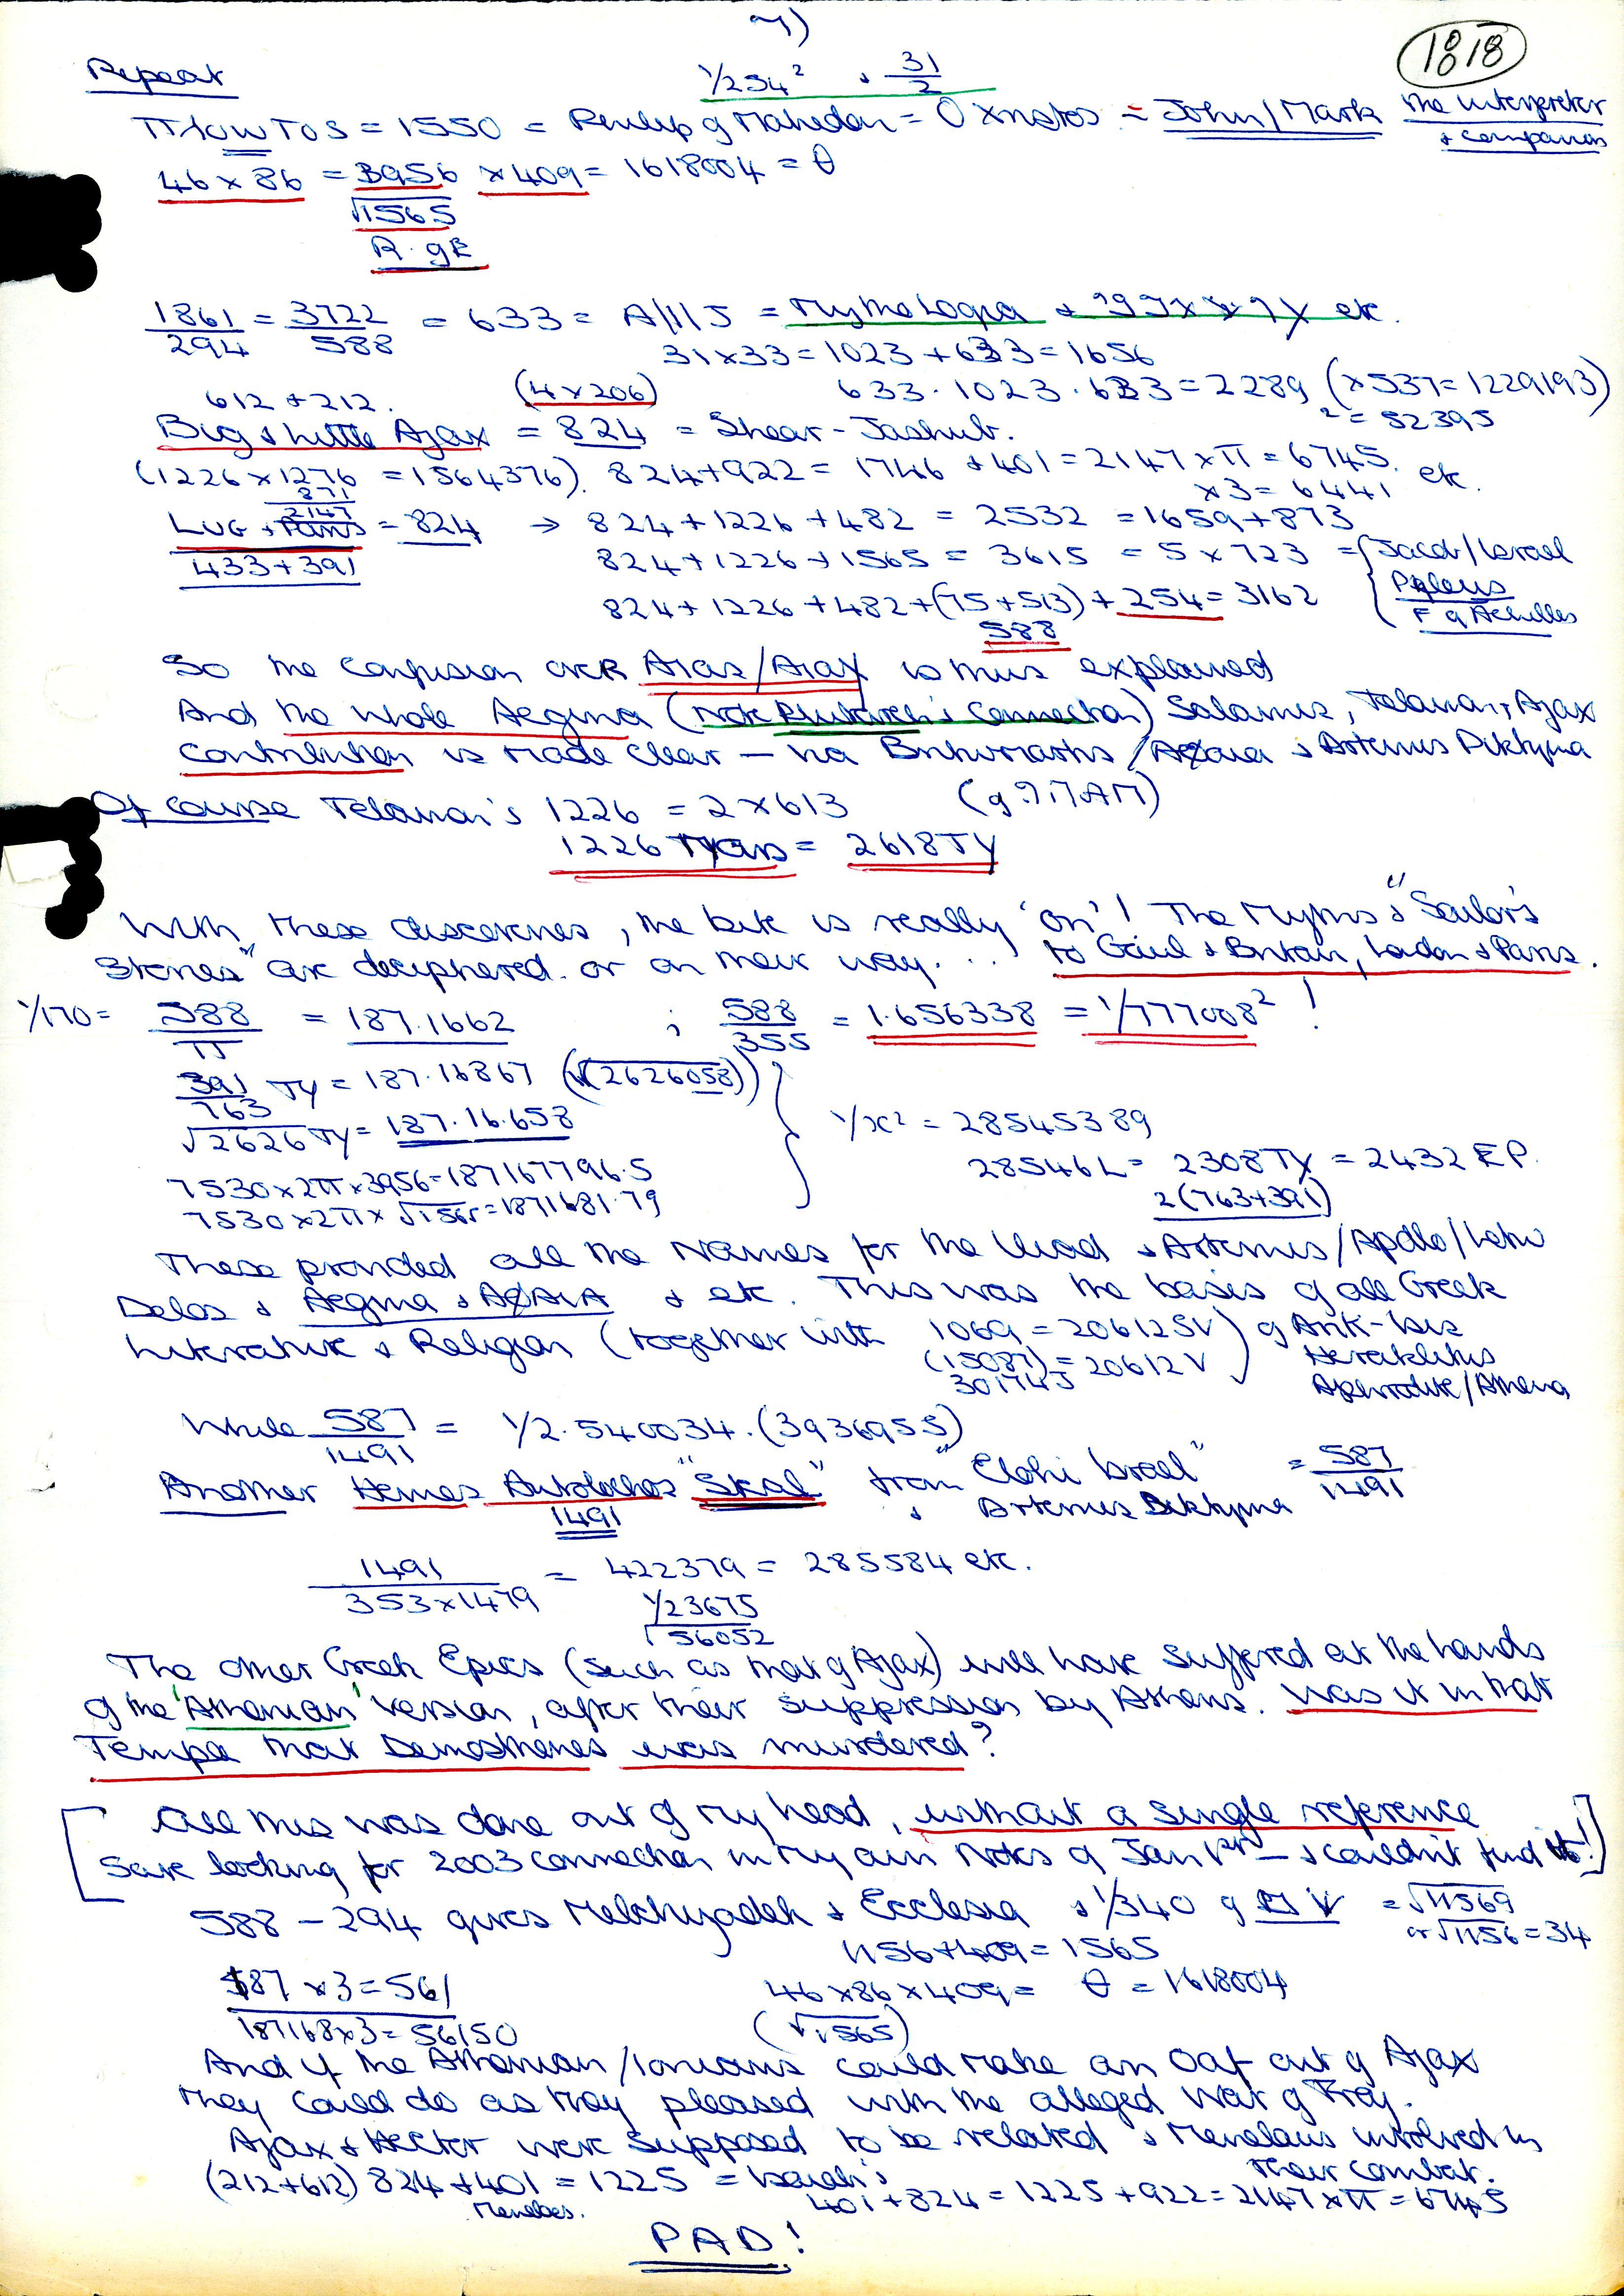 7)
1818
Repeat
1/254² + 31/2
ΠλουτοS = 1550 = = John/Mark the interpreter
+ companion
46 x 86 = 3956 x 409 = 1618004 = θ
√1565
R. of E
1861/294 = 3722/588 = 633 = = Mythologia + etc.
31x33 = 1023 + 633 = 1656
612 + 212. (4 x 206) 633. 1023. 633 = 2289 (x 537 = 1229193)
Big & Little Ajax = 824 = Shear-Jashub. ² = 52395
(1226 x 1276 = 1564376). 824 + 922 = 1746 + 401 = 2147 x π = 6745. etc.
871 x 3 = 6441
2147
LUG + Paris = 824 → 824 + 1226 + 482 = 2532 = 1659 + 873
433 + 391 824 + 1226 + 1565 = 3615 = 5 x 723 = { Jacob/Israel
Peleus
824 + 1226 + 482 + (75 + 513) + 254 = 3162 F of Achilles
588
So the confusion over Aias/Ajax is thus explained
And the whole Aegina (Note Plutarch's Connection) Salamis, Telamon, Ajax
Contribution is made clear – via Britomartis / Aφaia & Artemis Diktyna
Of course Telamon's 1226 = 2 x 613
1226 = 2618 TY
With these discoveries, the bite is really 'on'! The Myths & "Sailor's
Stories" are deciphered. or on their way... to Gaul & Britain, London & Paris.
1/170 = 588/π = 187.1662 ; 588/355 = 1.656338 = 1/777008² !
391/763 TY = 187.16867 (√(2626058))
√2626 TY = 187.16.658 1/x² = 28545389
28546 L = 2308 TY = 2432 EP.
7530 x 2π x 3956 = 187167796.5 2(763+391)
7530 x 2π x √1565 = 1871681.79
These provided all the Names for the Iliad & Artemis/Apollo/Leto
Delos & Aegina & AφAIA & etc. This was the basis of all Greek
Literature & Religion (together with 1069 = 20612 SV) of Ark-
(15087) = 20612 V Herakleitus
30174 J Aphrodite/Athena
While 587/1491 = 1/2.540034. (3936955)
Another Hermes Autolochos "Skol" from "Elohi Israel" = 587/1491
1491 & Artemis Diktyna
1491/353x1479 = 422379 = 285584 etc.
1/23675
√56052
The other Greek Epics (such as that of Ajax) will have suffered at the hands
of the 'Athenian' version, after their suppression by Athens. Was it in that
Temple that Demosthenes was murdered?
[ All this was done out of my head, without a single reference
Save looking for 2003 connection in my own Notes of Jan 1st – & couldn't find it! ]
588 – 294 gives Melchizadek & Ecclesia & 1/340 of = √11569
1156 + 409 = 1565 or √1156 = 34
187 x 3 = 561 46 x 86 x 409 = θ = 1618004
187168 x 3 = 56150 (√1565)
And if the Athenian/Ionians could make an Oaf out of Ajax
they could do as they pleased with the alleged War of Troy.
Ajax & Hector were supposed to be related & Menelaus involved in
their combat.
(212 + 612) 824 + 401 = 1225 = Isaiah's 401 + 824 = 1225 + 922 = 2147 x π = 6745
Menelaos.
PAD!